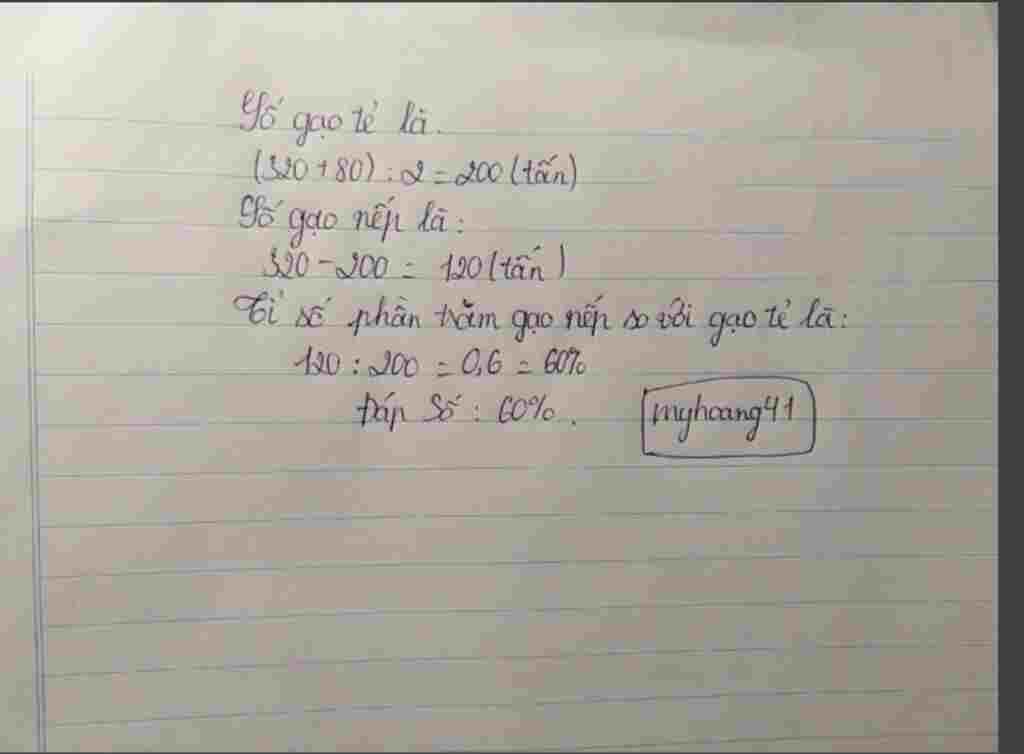 Số gạo tẻ là.
(320 + 80) : 2 = 200 (tấn)
Số gạo nếp là :
320 - 200 = 120 (tấn)
Tỉ số phần trăm gạo nếp so với gạo tẻ là :
120 : 200 = 0,6 = 60%
Đáp Số : 60% .
myhoang41